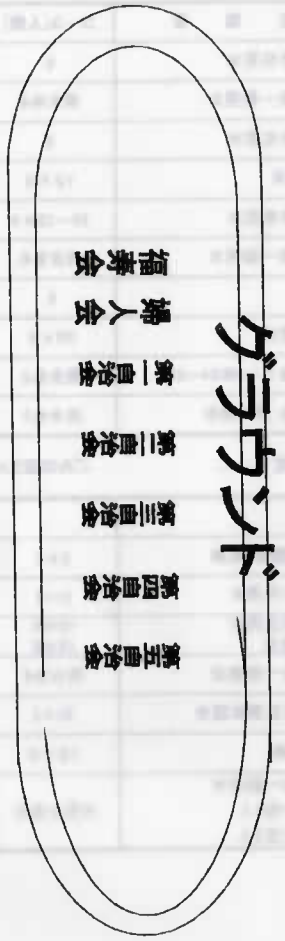 グラウンド
福寿会
婦人会
第一自治会
第二自治会
第三自治会
第四自治会
第五自治会